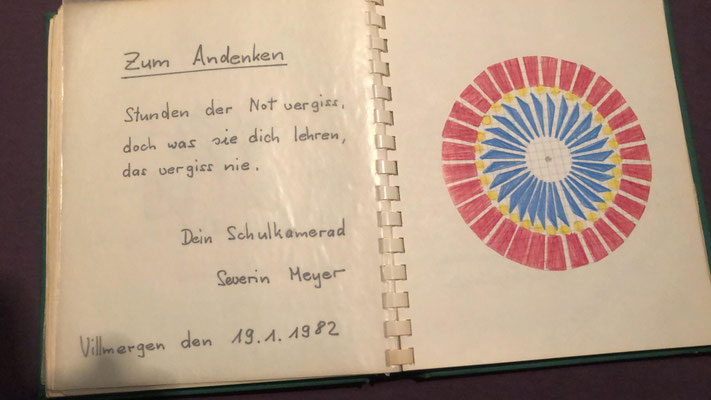 Zum Andenken
Stunden der Not vergiss,
doch was sie dich lehren,
das vergiss nie.
Dein Schulkamerad
Severin Meyer
Villmergen den 19.1.1982